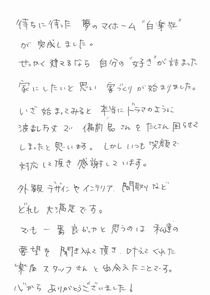 待ちに待った 夢のマイホーム
が完成しました。
せっかく建てるなら 自分の"好き"が詰まった
家にしたいと思い 家づくりが始まりました。
いざ始まってみると 本当にドラマのように
波乱万丈で 備前島さんをたくさん困らせて
しまったと思います。しかしいつも笑顔で
対応して頂き感謝しています。
外観デザインやインテリア、間取りなど
どれも大満足です。
でも一番良かったと思うのは 私達の
要望を聞き入れて頂き、叶えてくれた
スタッフさんと出会えたことです。
心から ありがとうございました!